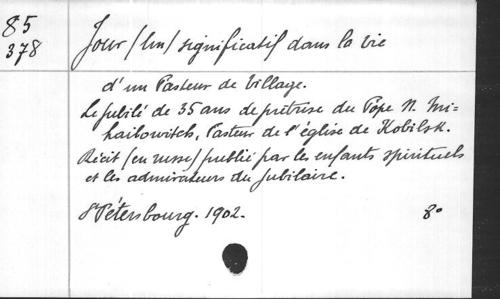 85
378
Jour (Un) significatif dans la vie
d'un Pasteur de Village.
Le jubilé de 35 ans de prêtrise du Pope N. Mi=
hailowitch, Pasteur de l'église de Kobilsk.
Récit (en russe) publié par les enfants spirituels
et les admirateurs du Jubilaire.
St Pétersbourg. 1902. 8°